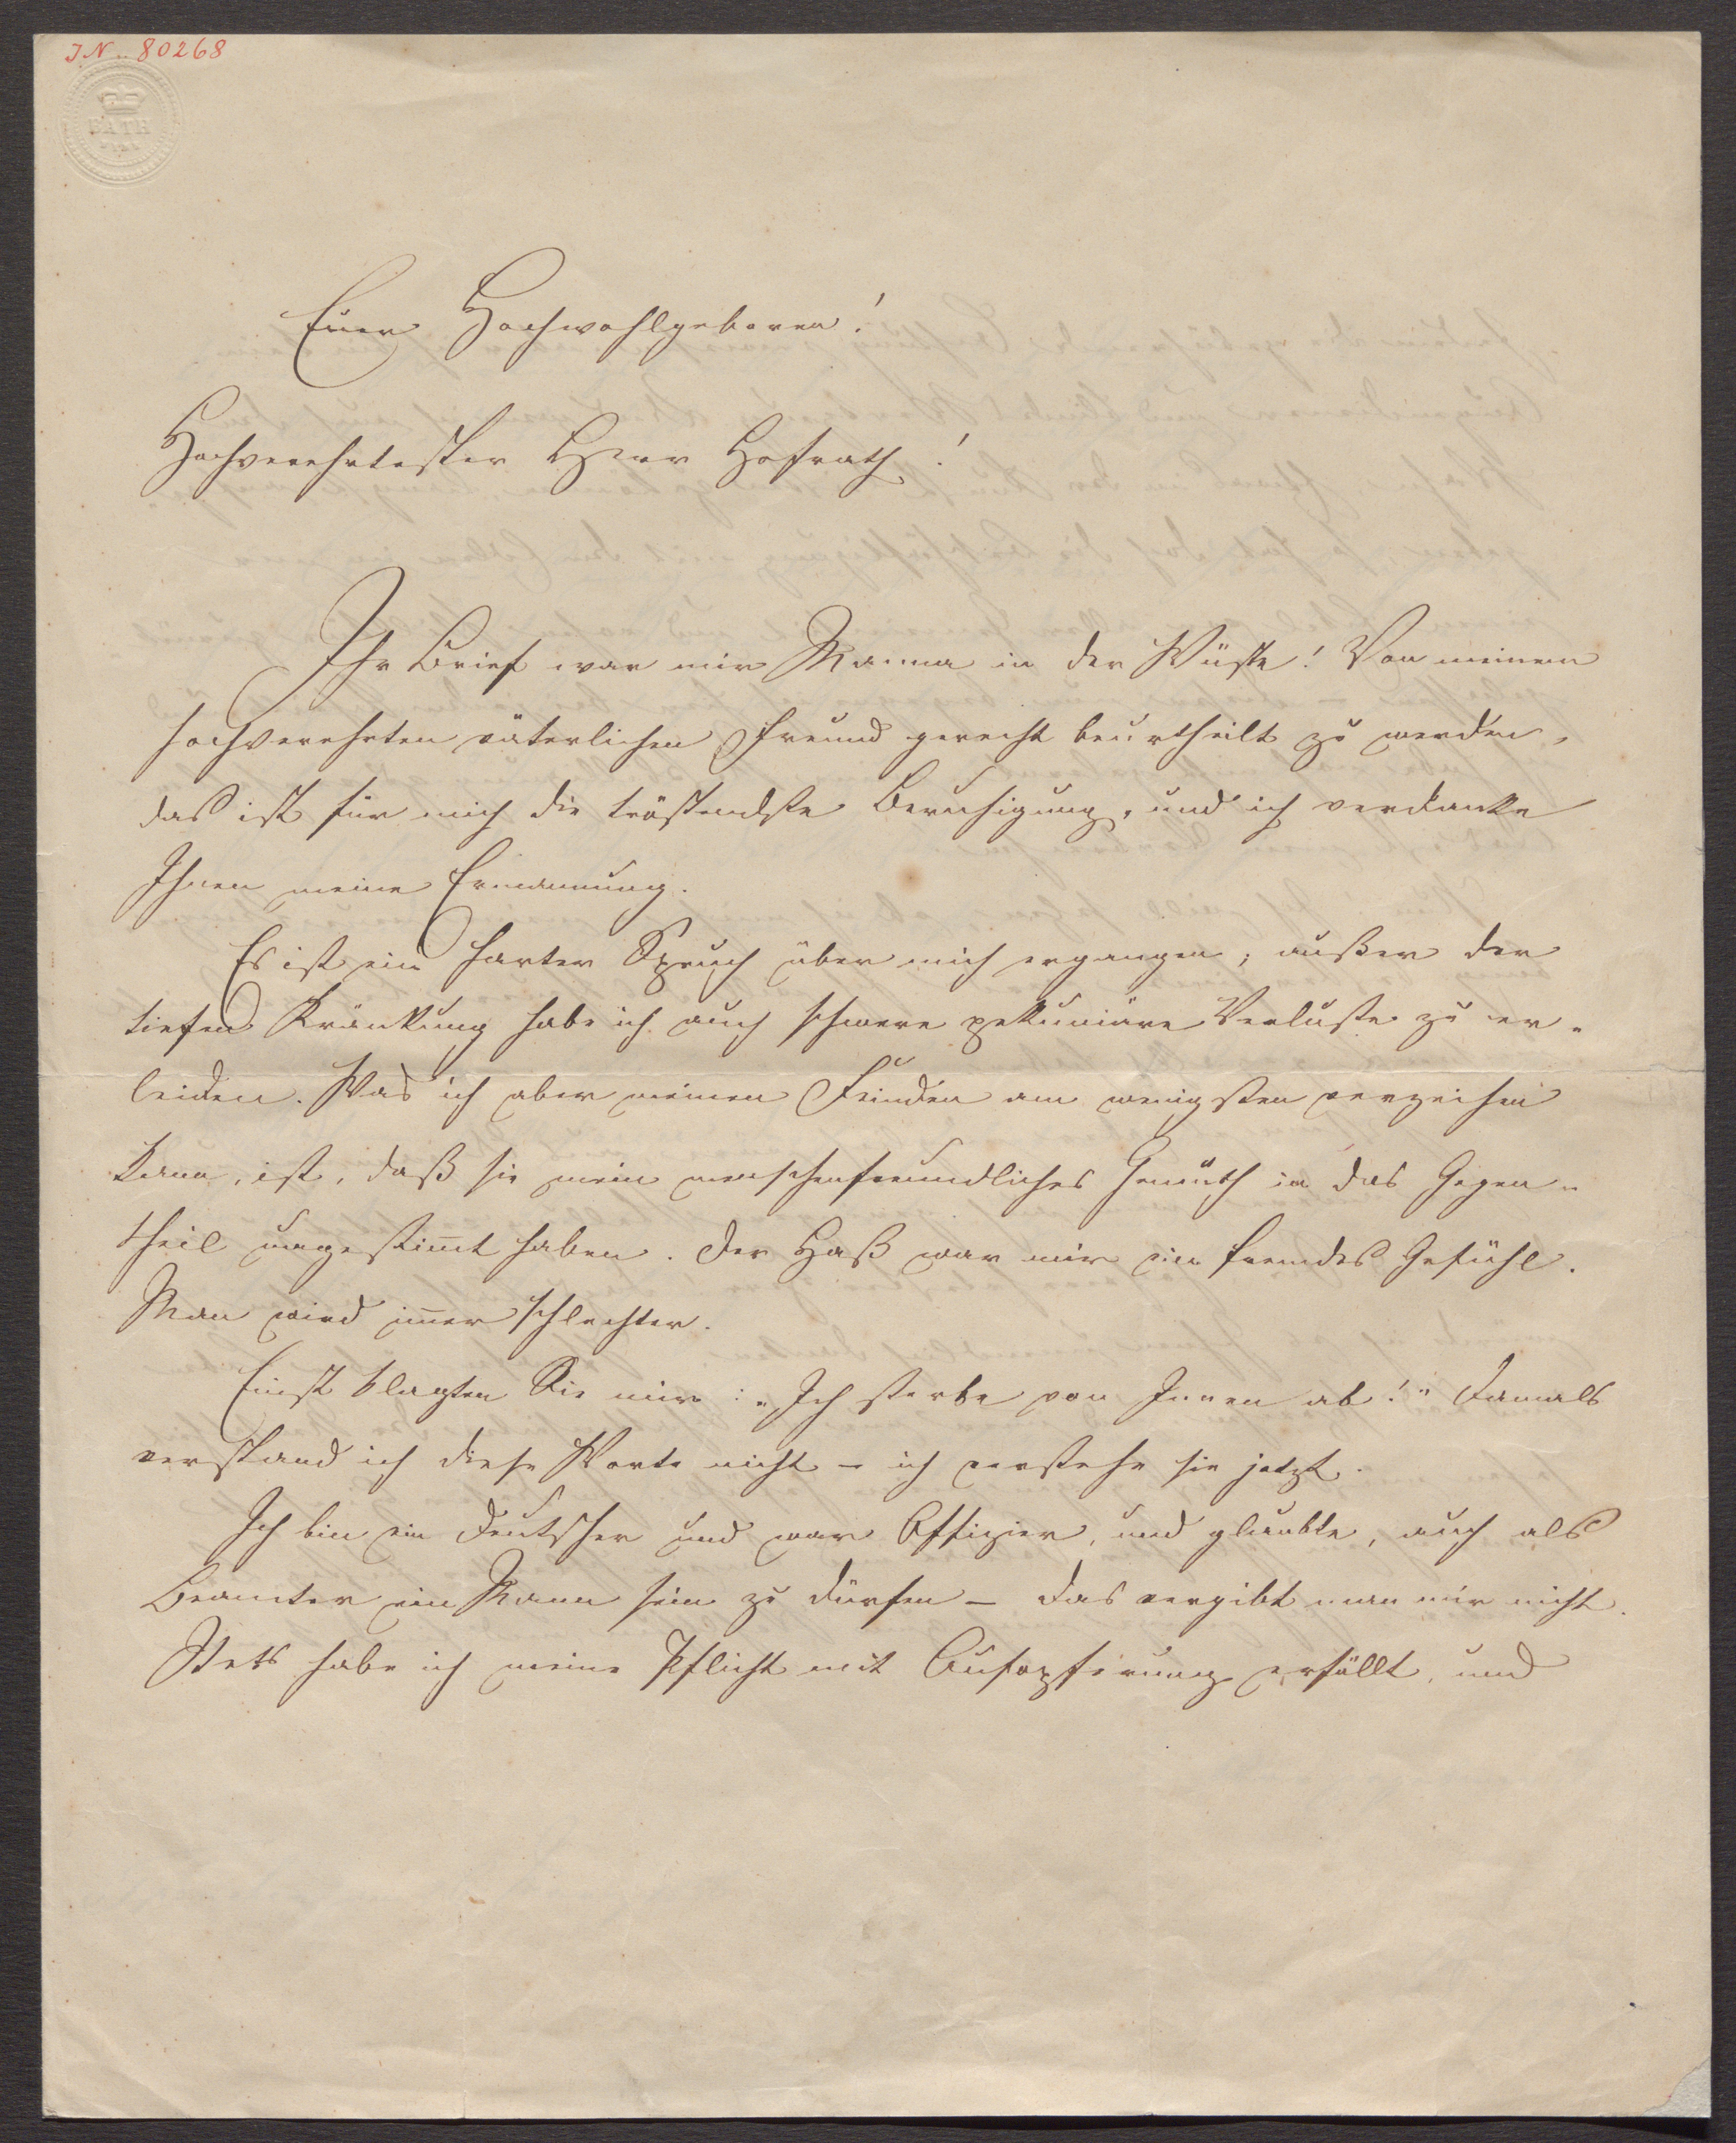 IN. 80268
BATH
Euer Hochwohlgeboren!
Hochverehrtester Herr Hofrath!
Ihr Brief war mir Manna in der Wüste! Von meinem
hochverehrten väterlichen Freund gerecht beurtheilt zu werden,
das ist für mich die tröstendste Beruhigung, und ich verdanke
Ihnen meine Ermannung.
Es ist ein harter Spruch über mich ergangen; außer der
tiefen Kränkung habe ich auch schwere pekuniäre Verluste zu er-
leiden. Was ich aber meinen Feinden am wenigsten verzeihen
kann, ist, daß sie mein menschenfreundliches Gemüth in das Gegen-
theil umgestim̅t haben. Der Haß war mir ein fremdes Gefühl.
Man wird im̅er schlechter.
Einst klagten Sie mir: „Ich sterbe von Innen ab!" Damals
verstand ich diese Worte nicht – ich verstehe sie jetzt.
Ich bin ein Deutscher und war Offizier, und glaubte, auch als
Beamter ein Mann sein zu dürfen – das vergibt man mir nicht.
Stets habe ich meine Pflicht mit Aufopferung erfüllt, und